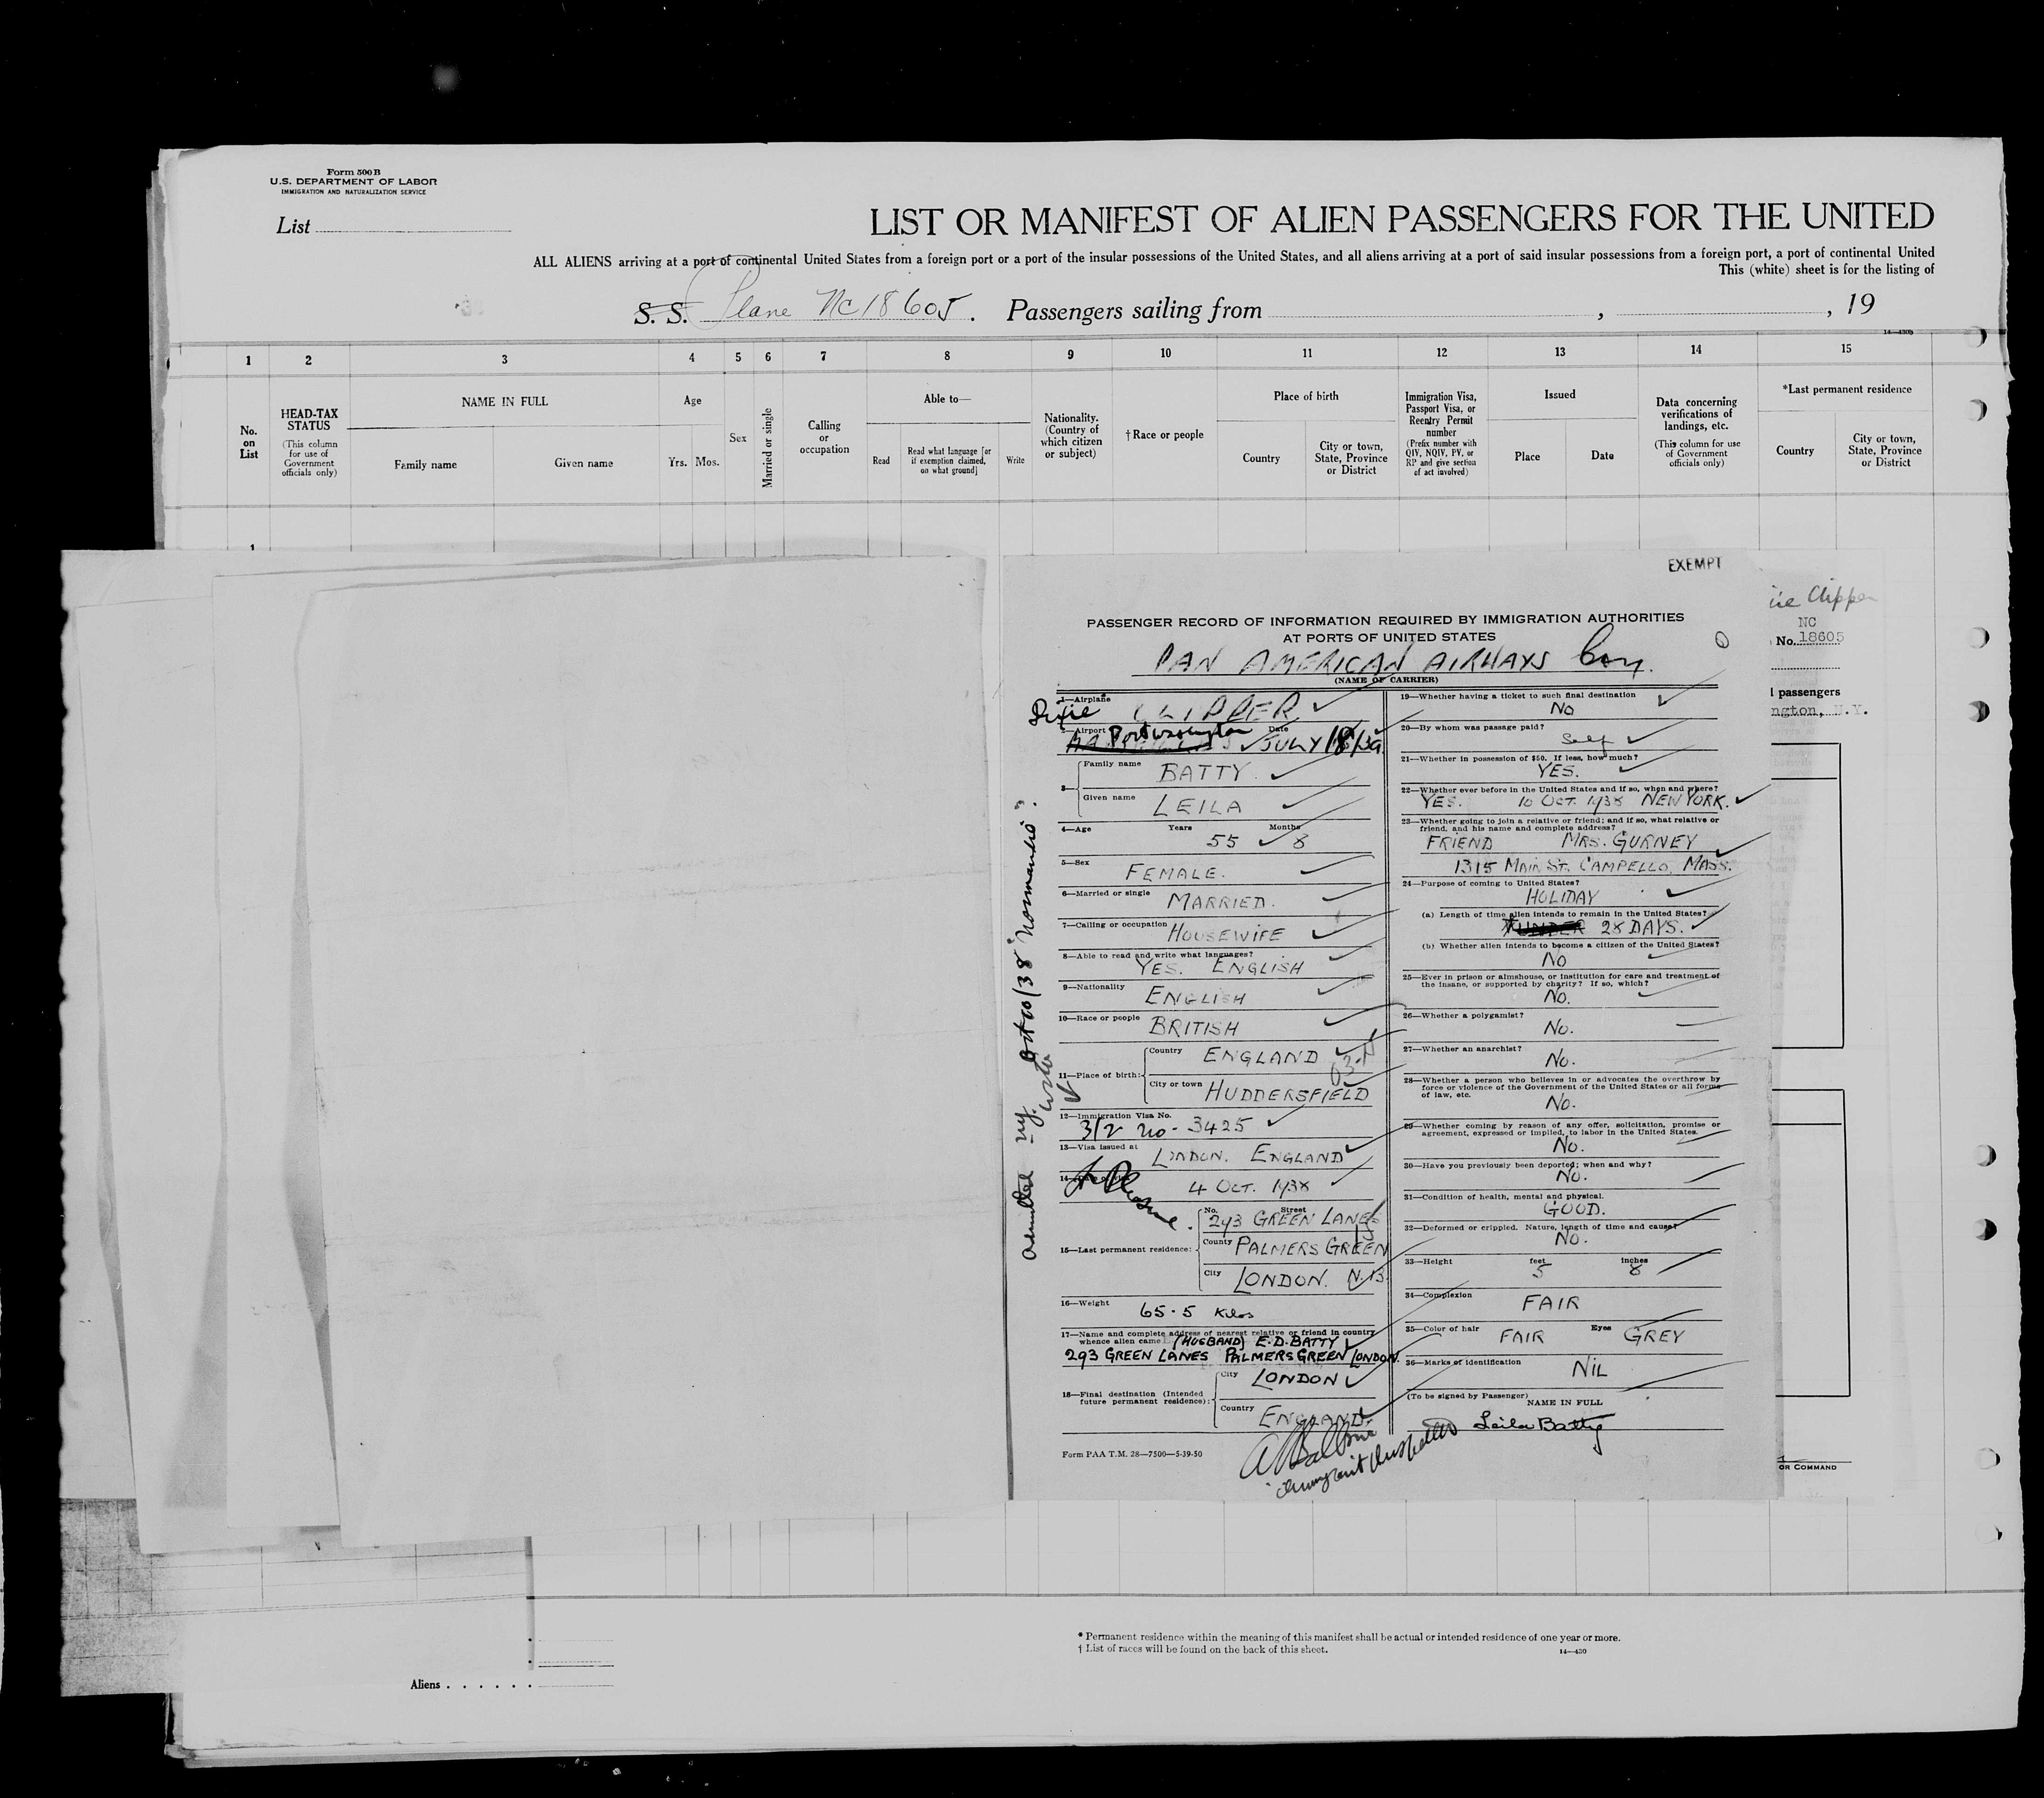 Form 500 B
U.S. DEPARTMENT OF LABOR
IMMIGRATION AND NATURALIZATION SERVICE
List
LIST OR MANIFEST OF ALIEN PASSENGERS FOR THE UNITED
ALL ALIENS arriving at a port of continental United States from a foreign port or a port of the insular possessions of the United States, and all aliens arriving at a port of said insular possessions from a foreign port, a port of continental United
This (white) sheet is for the listing of
S. S. Plane NC18605. Passengers sailing from , , 19
14—430b
1 2 3 4 5 6 7 8 9 10 11 12 13 14 15
No. on List
HEAD-TAX STATUS
(This column for use of Government officials only)
NAME IN FULL
Family name
Given name
Age
Yrs. Mos.
Sex
Married or single
Calling or occupation
Able to—
Read
Read what language [or if exemption claimed, on what ground]
Write
Nationality. (Country of which citizen or subject)
†Race or people
Place of birth
Country
City or town, State, Province or District
Immigration Visa, Passport Visa, or Reentry Permit number
(Prefix number with QIV, NQIV, PV, or RP and give section of act involved)
Issued
Place
Date
Data concerning verifications of landings, etc.
(This column for use of Government officials only)
*Last permanent residence
Country
City or town, State, Province or District
1
EXEMPT
PASSENGER RECORD OF INFORMATION REQUIRED BY IMMIGRATION AUTHORITIES
AT PORTS OF UNITED STATES
PAN AMERICAN AIRWAYS Coy.
(NAME OF CARRIER)
1—Airplane
Dixie CLIPPER
2—Airport Port Washington Date
JULY 18/39
3—
Family name BATTY
Given name LEILA
4—Age Years Months
55 8
5—Sex FEMALE.
6—Married or single MARRIED.
7—Calling or occupation HOUSEWIFE
8—Able to read and write what languages?
YES. ENGLISH
9—Nationality ENGLISH
10—Race or people BRITISH
11—Place of birth:
Country ENGLAND
City or town HUDDERSFIELD
12—Immigration Visa No.
3/2 No - 3425
13—Visa issued at
LONDON. ENGLAND
4 OCT. 1938
15—Last permanent residence:
No. Street
293 GREEN LANES
County PALMERS GREEN
City LONDON. N.13.
16—Weight 65.5 Kilos
17—Name and complete address of nearest relative or friend in country
whence alien came (HUSBAND) E.D. BATTY
293 GREEN LANES PALMERS GREEN LONDON.
18—Final destination (Intended future permanent residence):
City LONDON
Country ENGLAND.
Form PAA T.M. 28—7500—5-39-50
Immigrant Inspector
19—Whether having a ticket to such final destination
No
20—By whom was passage paid?
Self
21—Whether in possession of $50. If less, how much?
YES.
22—Whether ever before in the United States and if so, when and where?
YES. 10 OCT. 1938 NEW YORK.
23—Whether going to join a relative or friend; and if so, what relative or
friend, and his name and complete address?
FRIEND MRS. GURNEY
1315 MAIN ST. CAMPELLO, MASS.
24—Purpose of coming to United States?
HOLIDAY
(a) Length of time alien intends to remain in the United States?
UNDER 28 DAYS.
(b) Whether alien intends to become a citizen of the United States?
NO
25—Ever in prison or almshouse, or institution for care and treatment of
the insane, or supported by charity? If so, which?
No.
26—Whether a polygamist?
No.
27—Whether an anarchist?
No.
28—Whether a person who believes in or advocates the overthrow by
force or violence of the Government of the United States or all forms
of law, etc.
No.
29—Whether coming by reason of any offer, solicitation, promise or
agreement, expressed or implied, to labor in the United States.
No.
30—Have you previously been deported; when and why?
No.
31—Condition of health, mental and physical.
GOOD.
32—Deformed or crippled. Nature, length of time and cause?
No.
33—Height feet inches
5 8
34—Complexion
FAIR
35—Color of hair FAIR Eyes GREY
36—Marks of identification NIL
(To be signed by Passenger)
NAME IN FULL
Leila Batty
admitted N.Y. Oct 10/38 "Normandie".
Clipper
NC
No. 18605
passengers
ngton, N.Y.
OR COMMAND
Aliens . . . . . .
* Permanent residence within the meaning of this manifest shall be actual or intended residence of one year or more.
† List of races will be found on the back of this sheet.
14—430